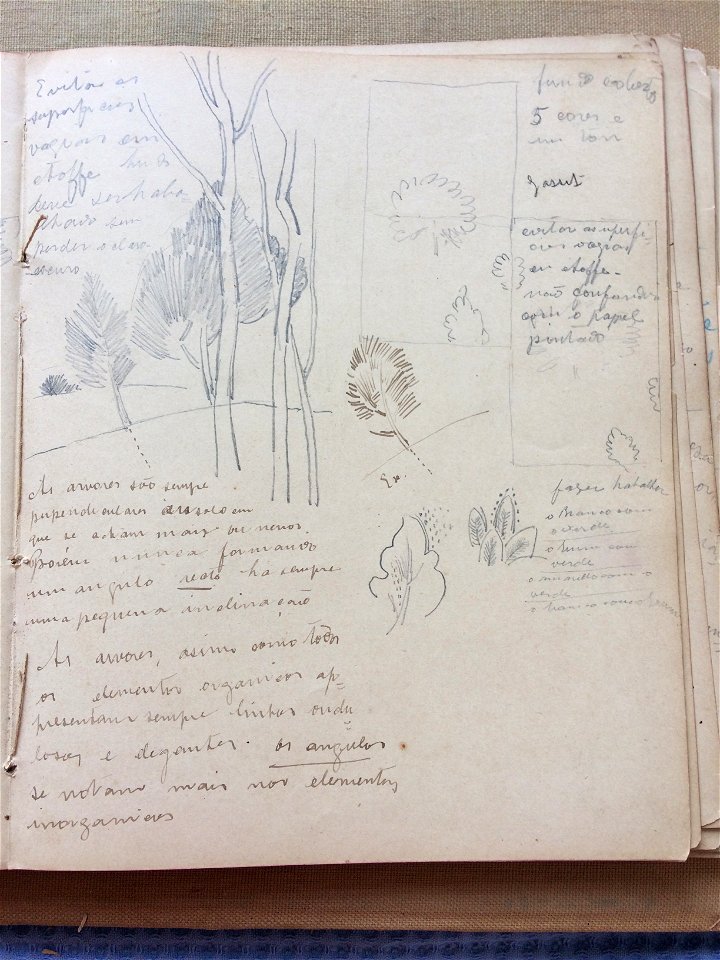 Evitar as
superficies
vagias em
étoffe
deve ser
chado sem
perder o claro
escuro
5 cores e
um tom
evitar as superfi-
cies vagias
em étoffe-
não confundir
com o papel
pintado
Ex.
As arvores são sempre
perpendiculares ao solo em
que se acham mais ou menos
Porém nunca formando
um angulo recto ha sempre
uma pequena inclinação
As arvores, asimo como todos
os elementos organicos ap-
presentam sempre linhas ondu
losas e elegantes. os angulos
se notam mais nos elementos
inorganicos
fazer
o branco com
o verde
verde
o amarello com o
verde
o branco com o